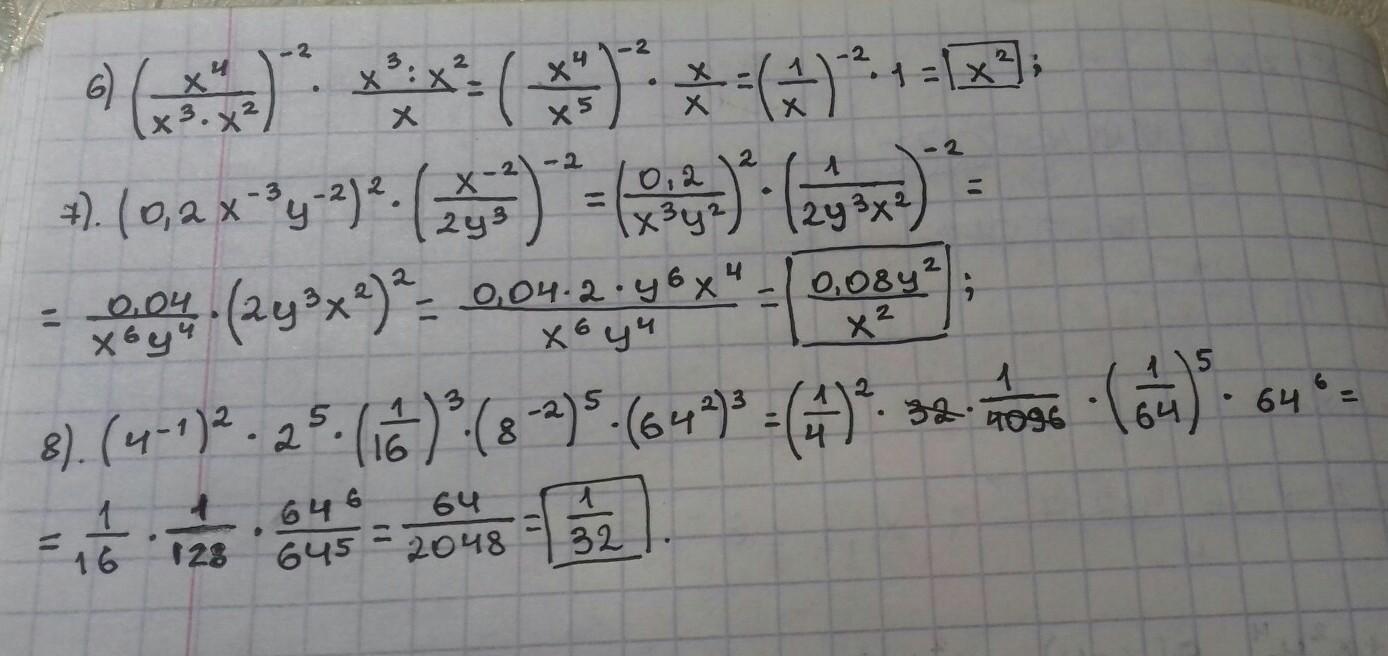 6) (x⁴/(x³·x²))⁻² · (x³:x²)/x = (x⁴/x⁵)⁻² · x/x = (1/x)⁻² · 1 = x²;
7). (0,2x⁻³y⁻²)² · (x⁻²/(2y³))⁻² = (0,2/(x³y²))² · (1/(2y³x²))⁻² =
= 0,04/(x⁶y⁴) · (2y³x²)² = (0,04·2·y⁶x⁴)/(x⁶y⁴) = 0,08y²/x²;
8). (4⁻¹)² · 2⁵ · (1/16)³ · (8⁻²)⁵ · (64²)³ = (1/4)² · 32 · 1/4096 · (1/64)⁵ · 64⁶ =
= 1/16 · 1/128 · 64⁶/64⁵ = 64/2048 = 1/32.